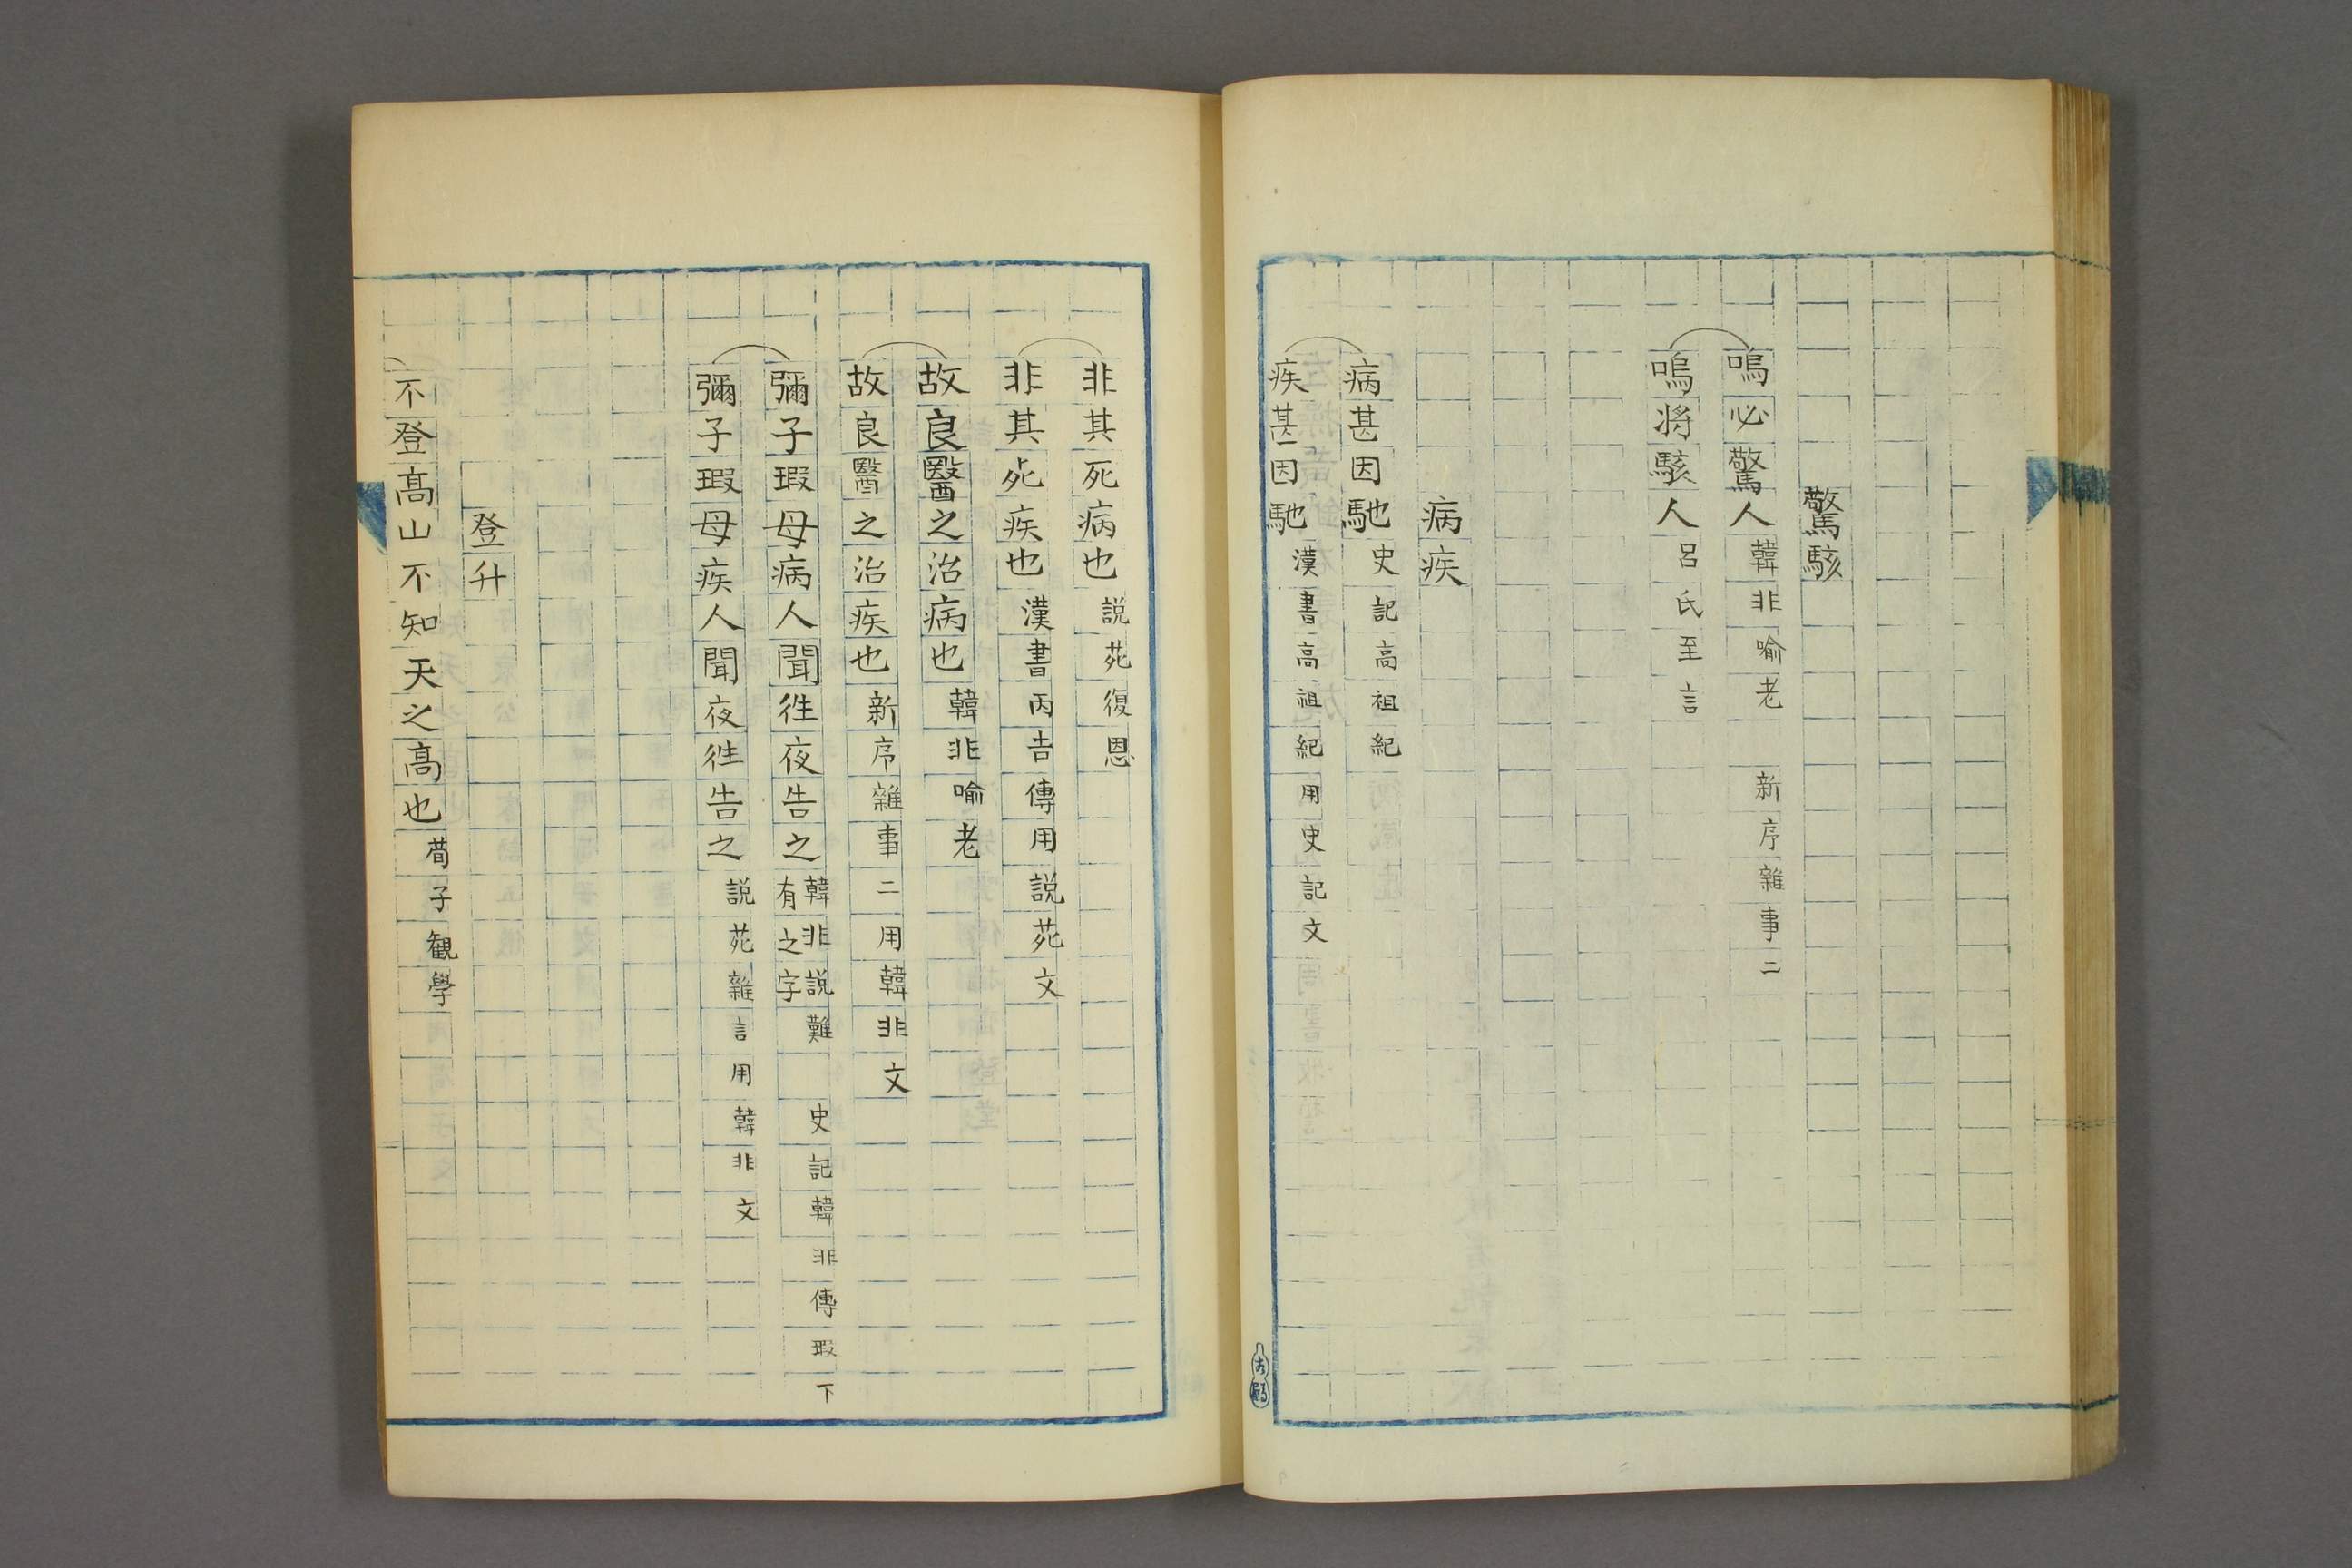 驚駭
鳴必驚人 韓非喻老 新序雜事二
鳴将駭人 呂氏至言
病疾
病甚因馳 史記高祖紀
疾甚因馳 漢書高祖紀用史記文
非其死病也 説苑復恩
非其死疾也 漢書丙吉傳用説苑文
故良醫之治病也 韓非喻老
故良醫之治疾也 新序雜事二用韓非文
彌子瑕母病人聞徃夜告之 韓非説難 史記韓非傳瑕下
有之字
彌子瑕母疾人聞夜徃告之 説苑雜言用韓非文
登升
不登高山不知天之高也 荀子觀學